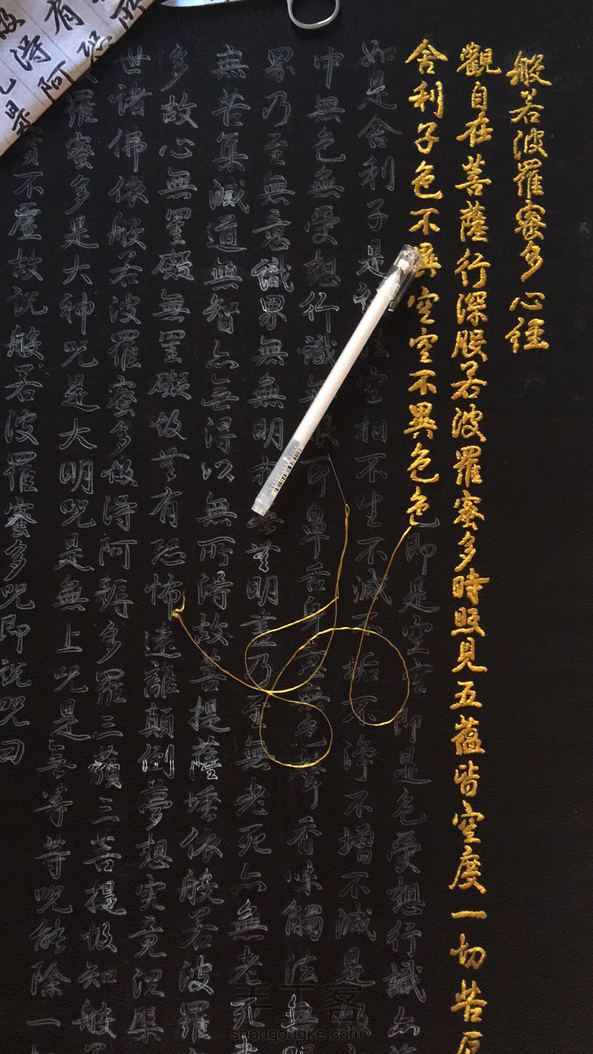 般若波羅蜜多心經
觀自在菩薩行深般若波羅蜜多時照見五蘊皆空度一切苦厄
舍利子色不異空空不異色色即是空空即是色受想行識亦
如是舍利子是法空相不生不滅不垢不淨不增不減是
中無色無受想行識無眼鼻舌身無色聲香味觸法無
界乃至無意識界無無明無明盡乃至無老死亦無老死
無苦集滅道無智亦無得以無所得故菩提薩埵依般若波羅
多故心無罣礙無罣礙故無有恐怖遠離顛倒夢想究竟涅槃
世諸佛依般若波羅蜜多故得阿耨多羅三藐三菩提故知般
羅蜜多是大神咒是大明咒是無上咒是無等等咒能除一
實不虛故說般若波羅蜜多咒即說咒曰
有恐
得阿
手工客
shougongke.com